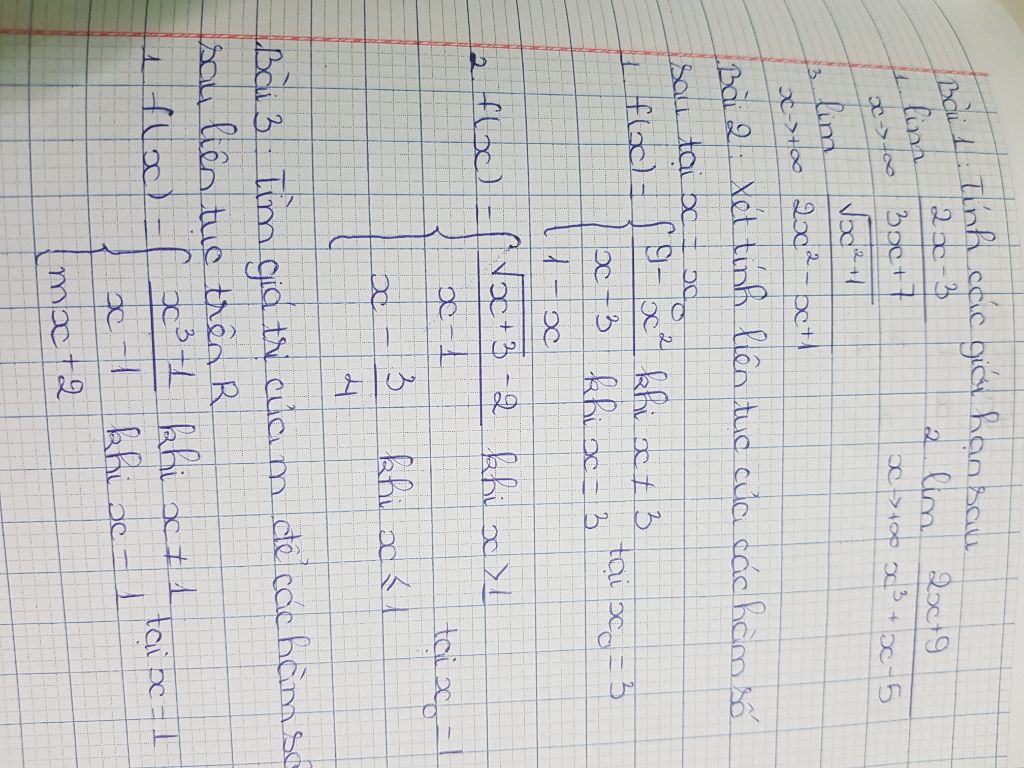 Bài 1: Tính các giới hạn sau
1. lim x→∞ (2x-3)/(3x+7) 2. lim x→+∞ (2x+9)/(x³+x-5)
3. lim x→+∞ √(x²+1)/(2x²-x+1)
Bài 2: Xét tính liên tục của các hàm số
sau tại x = x₀
1 f(x) = { (9-x²)/(x-3) khi x ≠ 3
1-x khi x = 3 tại x₀ = 3
2 f(x) = { (√(x+3)-2)/(x-1) khi x > 1
x - 3/4 khi x ≤ 1 tại x₀ = 1
Bài 3: Tìm giá trị của m để các hàm số
sau liên tục trên R
1 f(x) = { (x³-1)/(x-1) khi x ≠ 1
mx+2 khi x = 1 tại x = 1